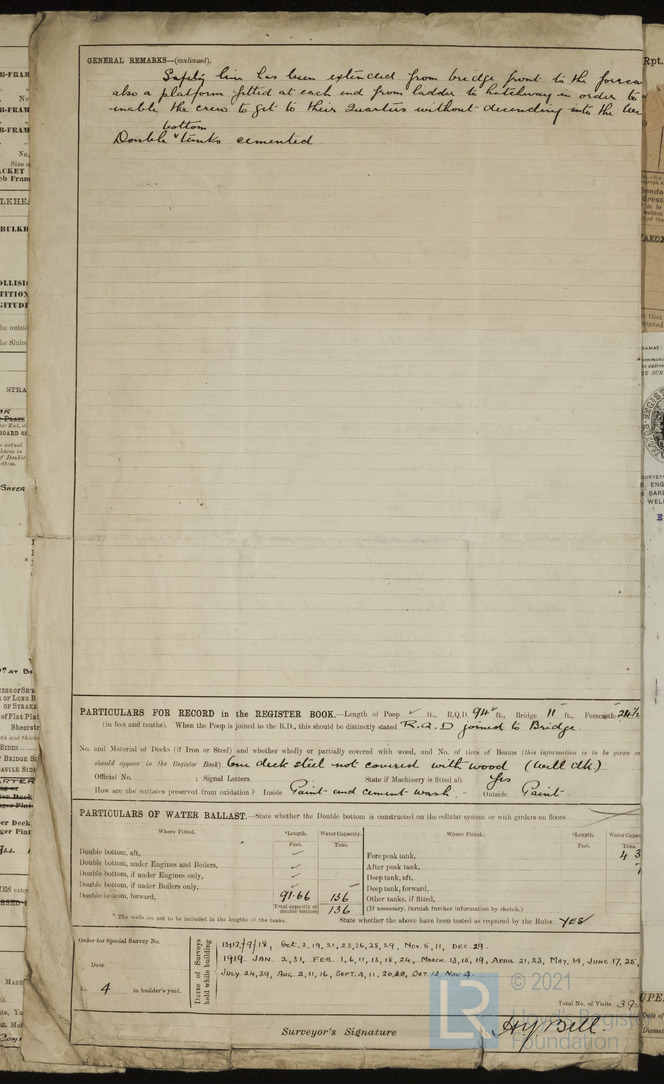 GENERAL REMARKS—(continued).
Safety line has been extended from bridge front to the foreca
also a platform fitted at each end from ladder to hatchway in order to
enable the crew to get to their Quarters without decending into the
bottom
Double tanks cemented
PARTICULARS FOR RECORD in the REGISTER BOOK.—Length of Poop ✓ ft., R.Q.D. 94 ft., Bridge 11 ft., Forecastle
(in feet and tenths). When the Poop is joined to the B.D., this should be distinctly stated R.Q.D joined to Bridge.
No. and Material of Decks (if Iron or Steel) and whether wholly or partially covered with wood, and No. of tiers of Beams (this information is to be given as
should appear in the Register Book) One deck steel not covered with wood (well dk)
Official No. ; Signal Letters State if Machinery is fitted aft Yes
How are the surfaces preserved from oxidation? Inside Paint and cement wash. Outside Paint
PARTICULARS OF WATER BALLAST.—State whether the Double bottom is constructed on the cellular system or with girders on floors
Where Fitted. *Length. Water Capacity. Where Fitted. *Length. Water Capac
Feet. Tons. Feet. Tons.
Double bottom, aft, Fore peak tank, 43
Double bottom, under Engines and Boilers, After peak tank,
Double bottom, if under Engines only, Deep tank, aft,
Double bottom, if under Boilers only, Deep tank, forward,
Double bottom, forward, 91.66 136 Other tanks, if fitted,
Total capacity of double bottom 136 (If necessary, furnish further information by sketch.)
* The wells are not to be included in the lengths of the tanks. State whether the above have been tested as required by the Rules YES
Order for Special Survey No.
Date
No. 4 in builder's yard.
Dates of Surveys held while building
Oct. 2, 19, 21, 23, 26, 28, 29, Nov. 5, 11, Dec. 29.
1919 Jan. 2, 31, Feb. 1, 6, 11, 13, 18, 24, March. 13, 15, 19, April 21, 23, May. 14, June 17, 25,
July 24, 29, Aug. 2, 11, 16, Sept. 4, 11, Oct. 13, Nov 4
Total No. of Visits 39
Surveyor's Signature HY Bell
© 2021
LR
Lloyd's Register
Foundation